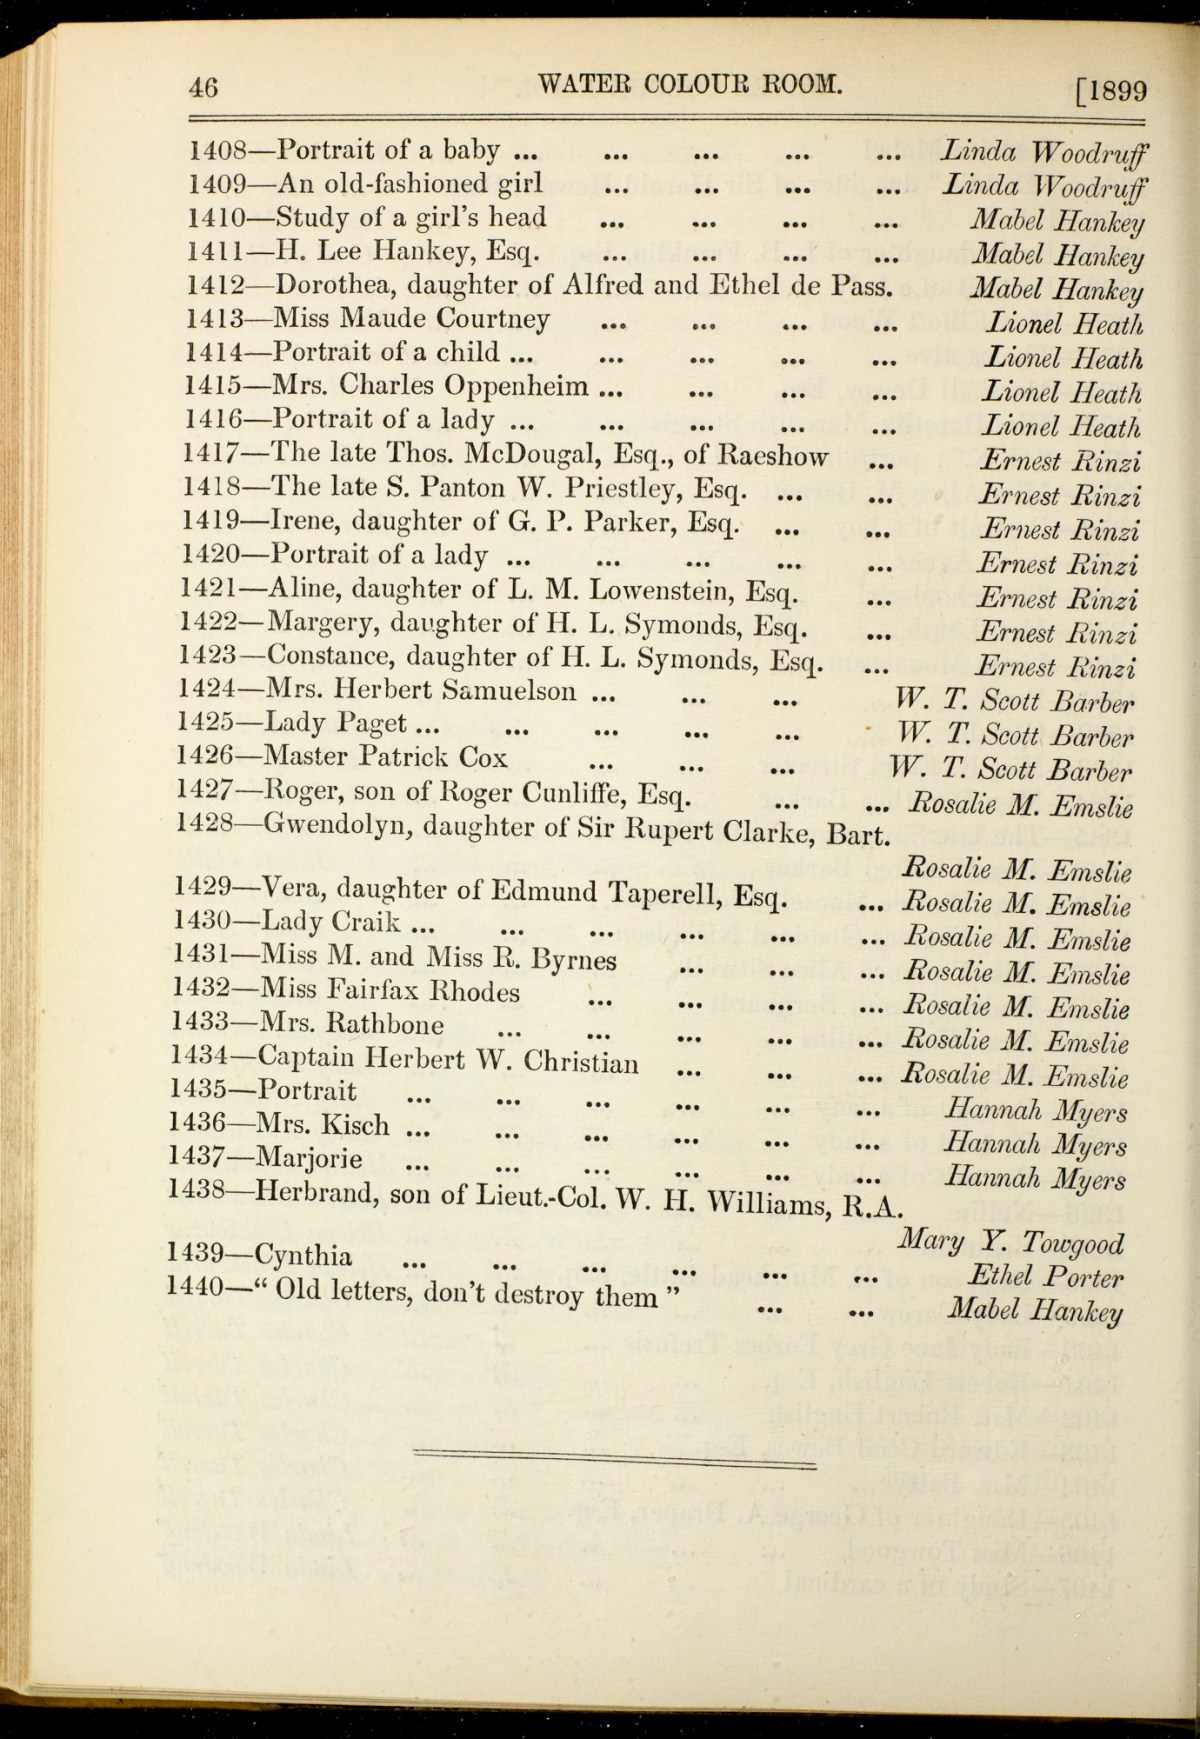 46 WATER COLOUR ROOM. [1899
1408—Portrait of a baby ... ... ... ... ... Linda Woodruff
1409—An old-fashioned girl ... ... ... ... Linda Woodruff
1410—Study of a girl's head ... ... ... ... Mabel Hankey
1411—H. Lee Hankey, Esq. ... ... ... ... Mabel Hankey
1412—Dorothea, daughter of Alfred and Ethel de Pass. Mabel Hankey
1413—Miss Maude Courtney ... ... ... ... Lionel Heath
1414—Portrait of a child ... ... ... ... ... Lionel Heath
1415—Mrs. Charles Oppenheim ... ... ... ... Lionel Heath
1416—Portrait of a lady ... ... ... ... ... Lionel Heath
1417—The late Thos. McDougal, Esq., of Raeshow ... Ernest Rinzi
1418—The late S. Panton W. Priestley, Esq. ... ... Ernest Rinzi
1419—Irene, daughter of G. P. Parker, Esq. ... ... Ernest Rinzi
1420—Portrait of a lady ... ... ... ... ... Ernest Rinzi
1421—Aline, daughter of L. M. Lowenstein, Esq. ... Ernest Rinzi
1422—Margery, daughter of H. L. Symonds, Esq. ... Ernest Rinzi
1423—Constance, daughter of H. L. Symonds, Esq. ... Ernest Rinzi
1424—Mrs. Herbert Samuelson ... ... ... W. T. Scott Barber
1425—Lady Paget ... ... ... ... ... W. T. Scott Barber
1426—Master Patrick Cox ... ... ... W. T. Scott Barber
1427—Roger, son of Roger Cunliffe, Esq. ... ... Rosalie M. Emslie
1428—Gwendolyn, daughter of Sir Rupert Clarke, Bart.
Rosalie M. Emslie
1429—Vera, daughter of Edmund Taperell, Esq. ... Rosalie M. Emslie
1430—Lady Craik ... ... ... ... ... ... Rosalie M. Emslie
1431—Miss M. and Miss R. Byrnes ... ... ... Rosalie M. Emslie
1432—Miss Fairfax Rhodes ... ... ... ... Rosalie M. Emslie
1433—Mrs. Rathbone ... ... ... ... ... Rosalie M. Emslie
1434—Captain Herbert W. Christian ... ... ... Rosalie M. Emslie
1435—Portrait ... ... ... ... ... ... Hannah Myers
1436—Mrs. Kisch ... ... ... ... ... ... Hannah Myers
1437—Marjorie ... ... ... ... ... ... Hannah Myers
1438—Herbrand, son of Lieut.-Col. W. H. Williams, R.A.
Mary Y. Towgood
1439—Cynthia ... ... ... ... ... ... Ethel Porter
1440—“ Old letters, don't destroy them ” ... ... Mabel Hankey